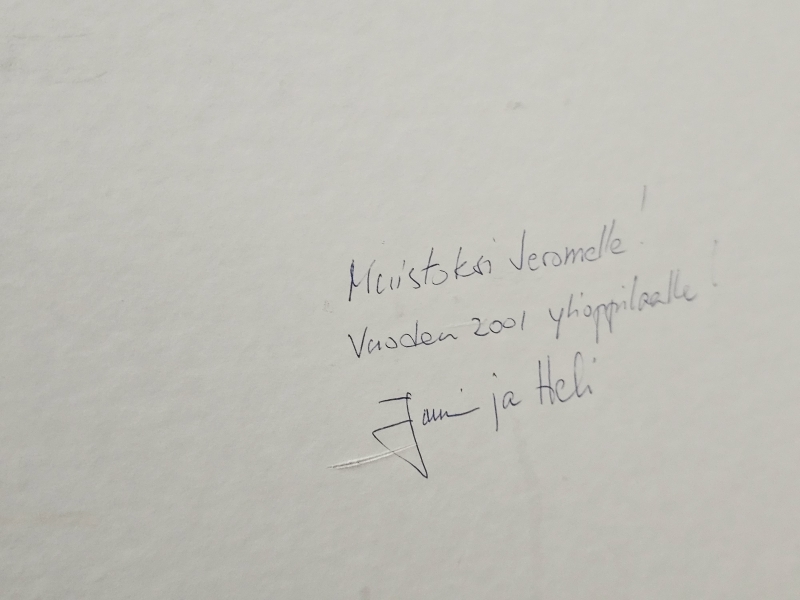 Muistoksi Jeromelle!
Vuoden 2001 ylioppilaalle!
Jani ja Heli